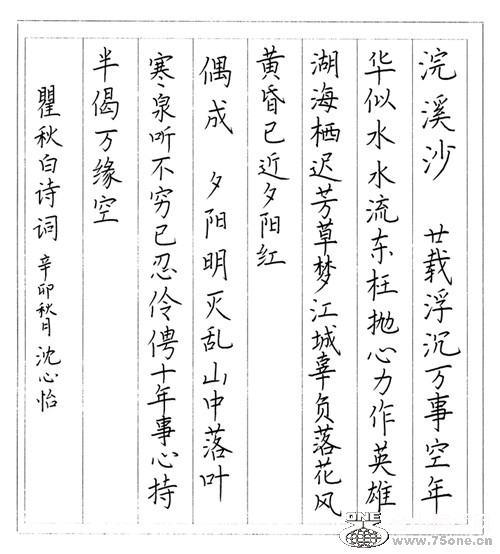 浣溪沙 廿载浮沉万事空年
华似水水流东枉抛心力作英雄
湖海栖迟芳草梦江城辜负落花风
黄昏已近夕阳红
偶成 夕阳明灭乱山中落叶
寒泉听不穷已忍伶俜十年事心持
半偈万缘空
瞿秋白诗词 辛卯秋日 沈心怡
ONE
www.75one.cn